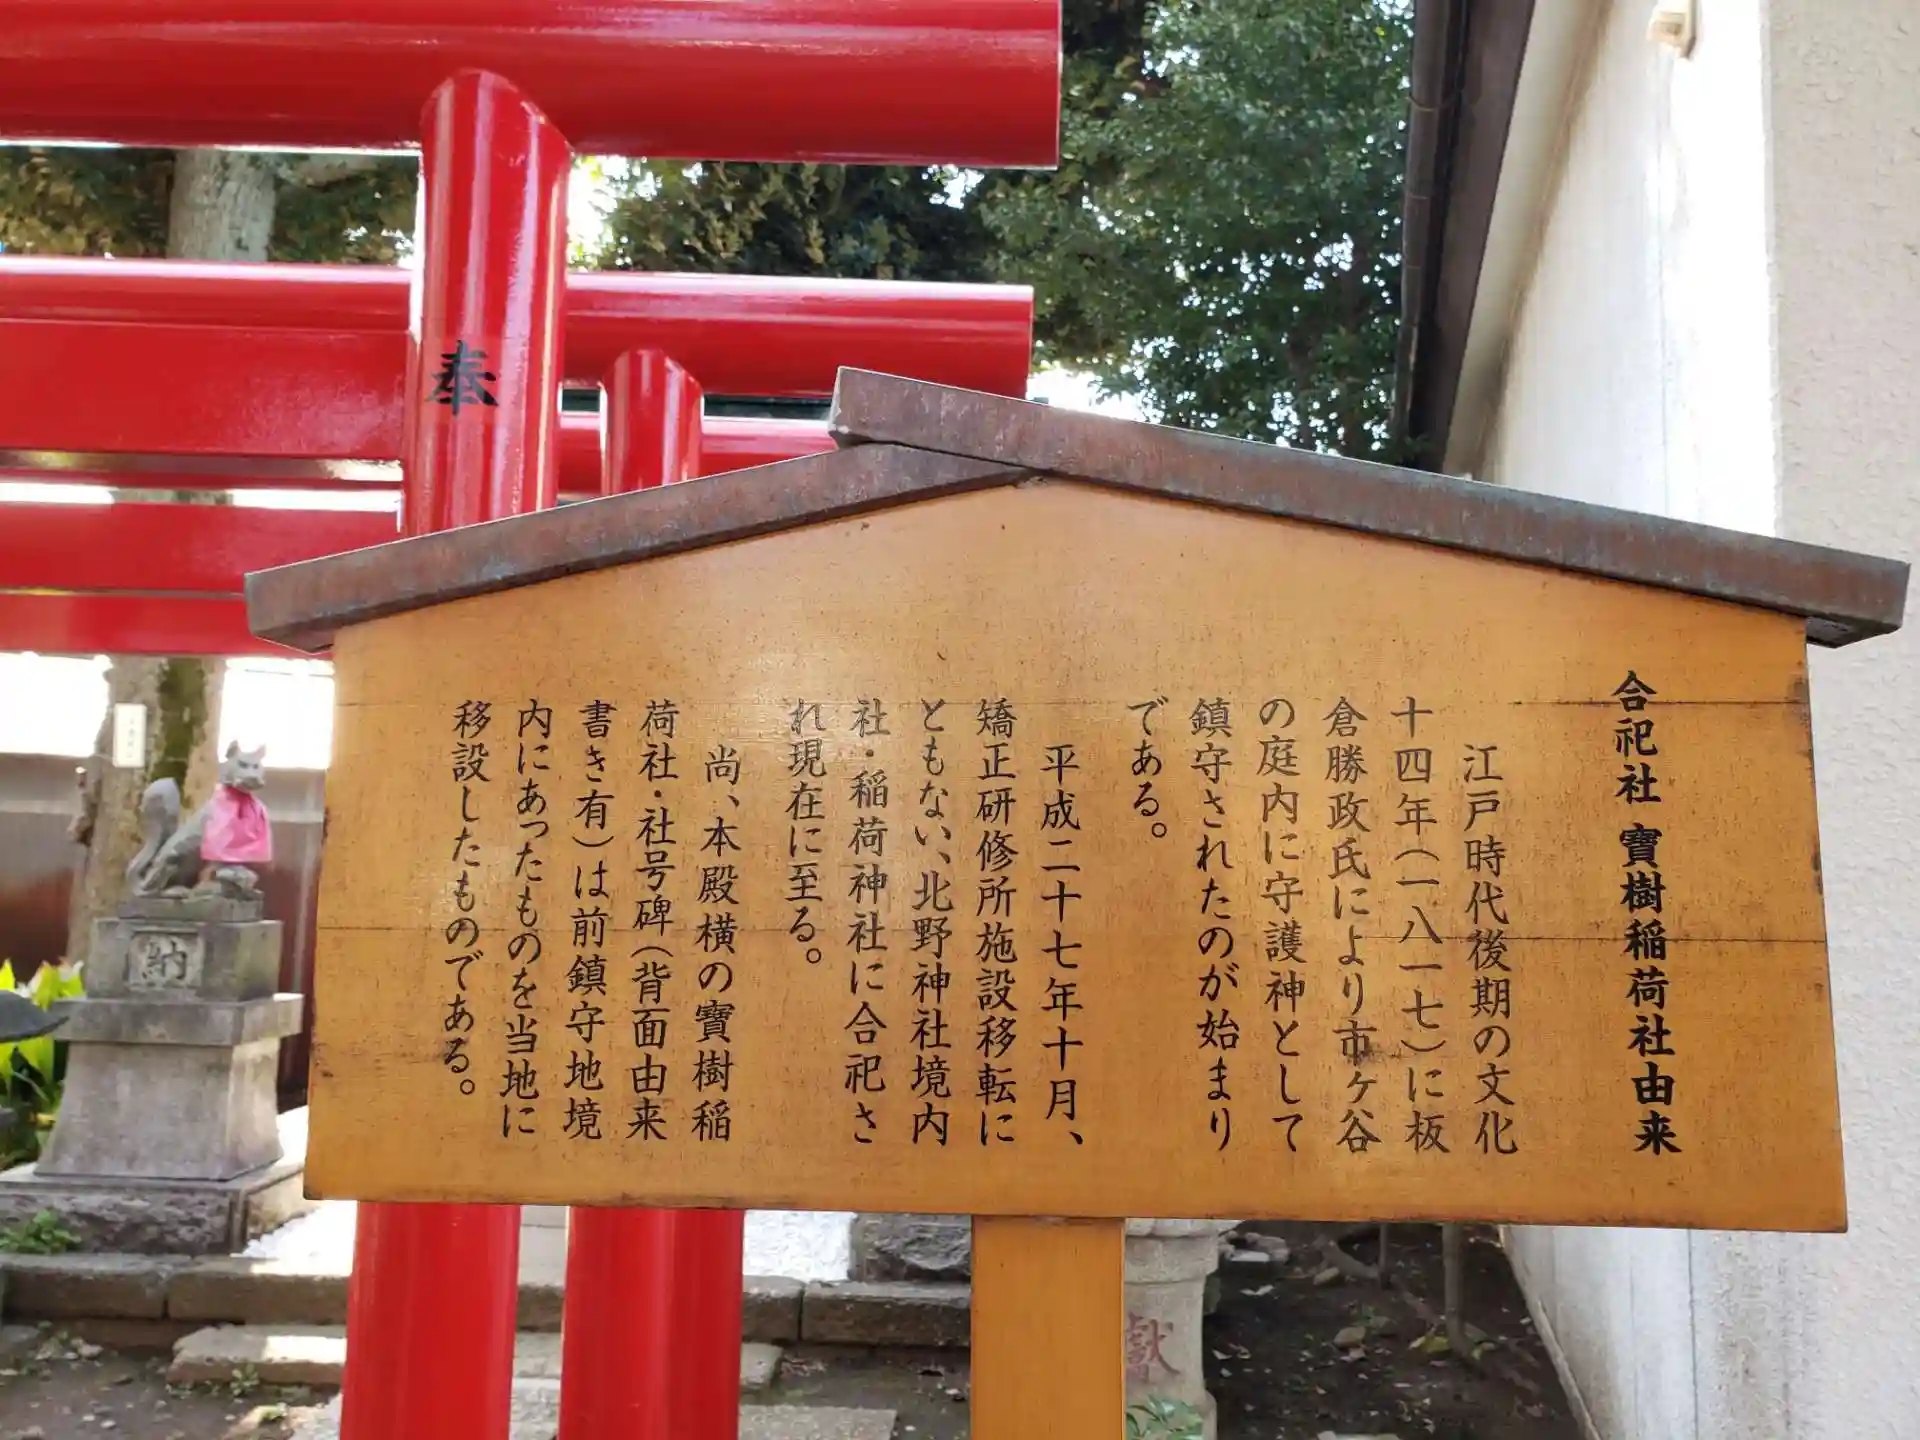 合祀社 寶樹稲荷社由来
江戸時代後期の文化
十四年（一八一七）に板
倉勝政氏により市ヶ谷
の庭内に守護神として
鎮守されたのが始まり
である。
平成二十七年十月、
矯正研修所施設移転に
ともない、北野神社境内
社・稲荷神社に合祀さ
れ現在に至る。
尚、本殿横の寶樹稲
荷社・社号碑（背面由来
書き有）は前鎮守地境
内にあったものを当地に
移設したものである。
奉
納
献